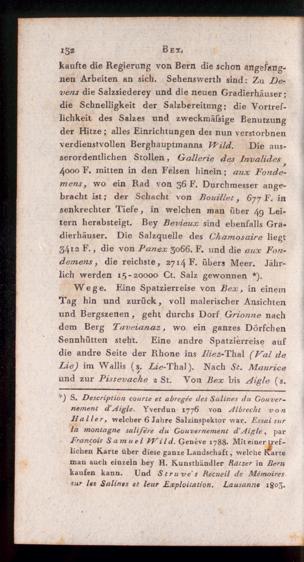 132 BEX.
kaufte die Regierung von Bern die schon angefang-
nen Arbeiten an sich. Sehenswerth sind: Zu De-
vens die Salzsiederey und die neuen Gradierhäuser;
die Schnelligkeit der Salzbereitung; die Vortref-
lichkeit des Salzes und zweckmäfsige Benutzung
der Hitze; alles Einrichtungen des nun verstorbnen
verdienstvollen Berghauptmanns Wild. Die aus-
serordentlichen Stollen, Gallerie des Invalides,
4000 F. mitten in den Felsen hinein; aux Fonde-
mens, wo ein Rad von 36 F. Durchmesser ange-
bracht ist; der Schacht von Bouillet, 677 F. in
senkrechter Tiefe, in welchen man über 49 Lei-
tern herabsteigt. Bey Bevieux sind ebenfalls Gra-
dierhäuser. Die Salzquelle des Chamosaire liegt
3412 F., die von Panex 3066. F. und die aux Fon-
demens, die reichste, 2714 F. übers Meer. Jähr-
lich werden 15-20000 Ct. Salz gewonnen *).
Wege. Eine Spatzierreise von Bex, in einem
Tag hin und zurück, voll malerischer Ansichten
und Bergszenen, geht durchs Dorf Grionne nach
dem Berg Taveianaz, wo ein ganzes Dörfchen
Sennhütten steht. Eine andre Spatzierreise auf
die andre Seite der Rhone ins Iliez-Thal (Val de
Lie) im Wallis (s. Lie-Thal). Nach St. Maurice
und zur Pissevache 2 St. Von Bex bis Aigle (s.
*) S. Description courte et abregée des Salines du Gouver-
nement d'Aigle. Yverdun 1776 von Albrecht von
Haller, welcher 6 Jahre Salzinspektor war. Essai sur
la montagne salifère du Gouvernement d'Aigle, par
François Samuel Wild. Genève 1788. Mit einer tref-
lichen Karte über diese ganze Landschaft, welche Karte
man auch einzeln bey H. Kunsthändler Ratzer in Bern
kaufen kann. Und Struve's Recueil de Mémoires
sur les Salines et leur Exploitation. Lausanne 1803.